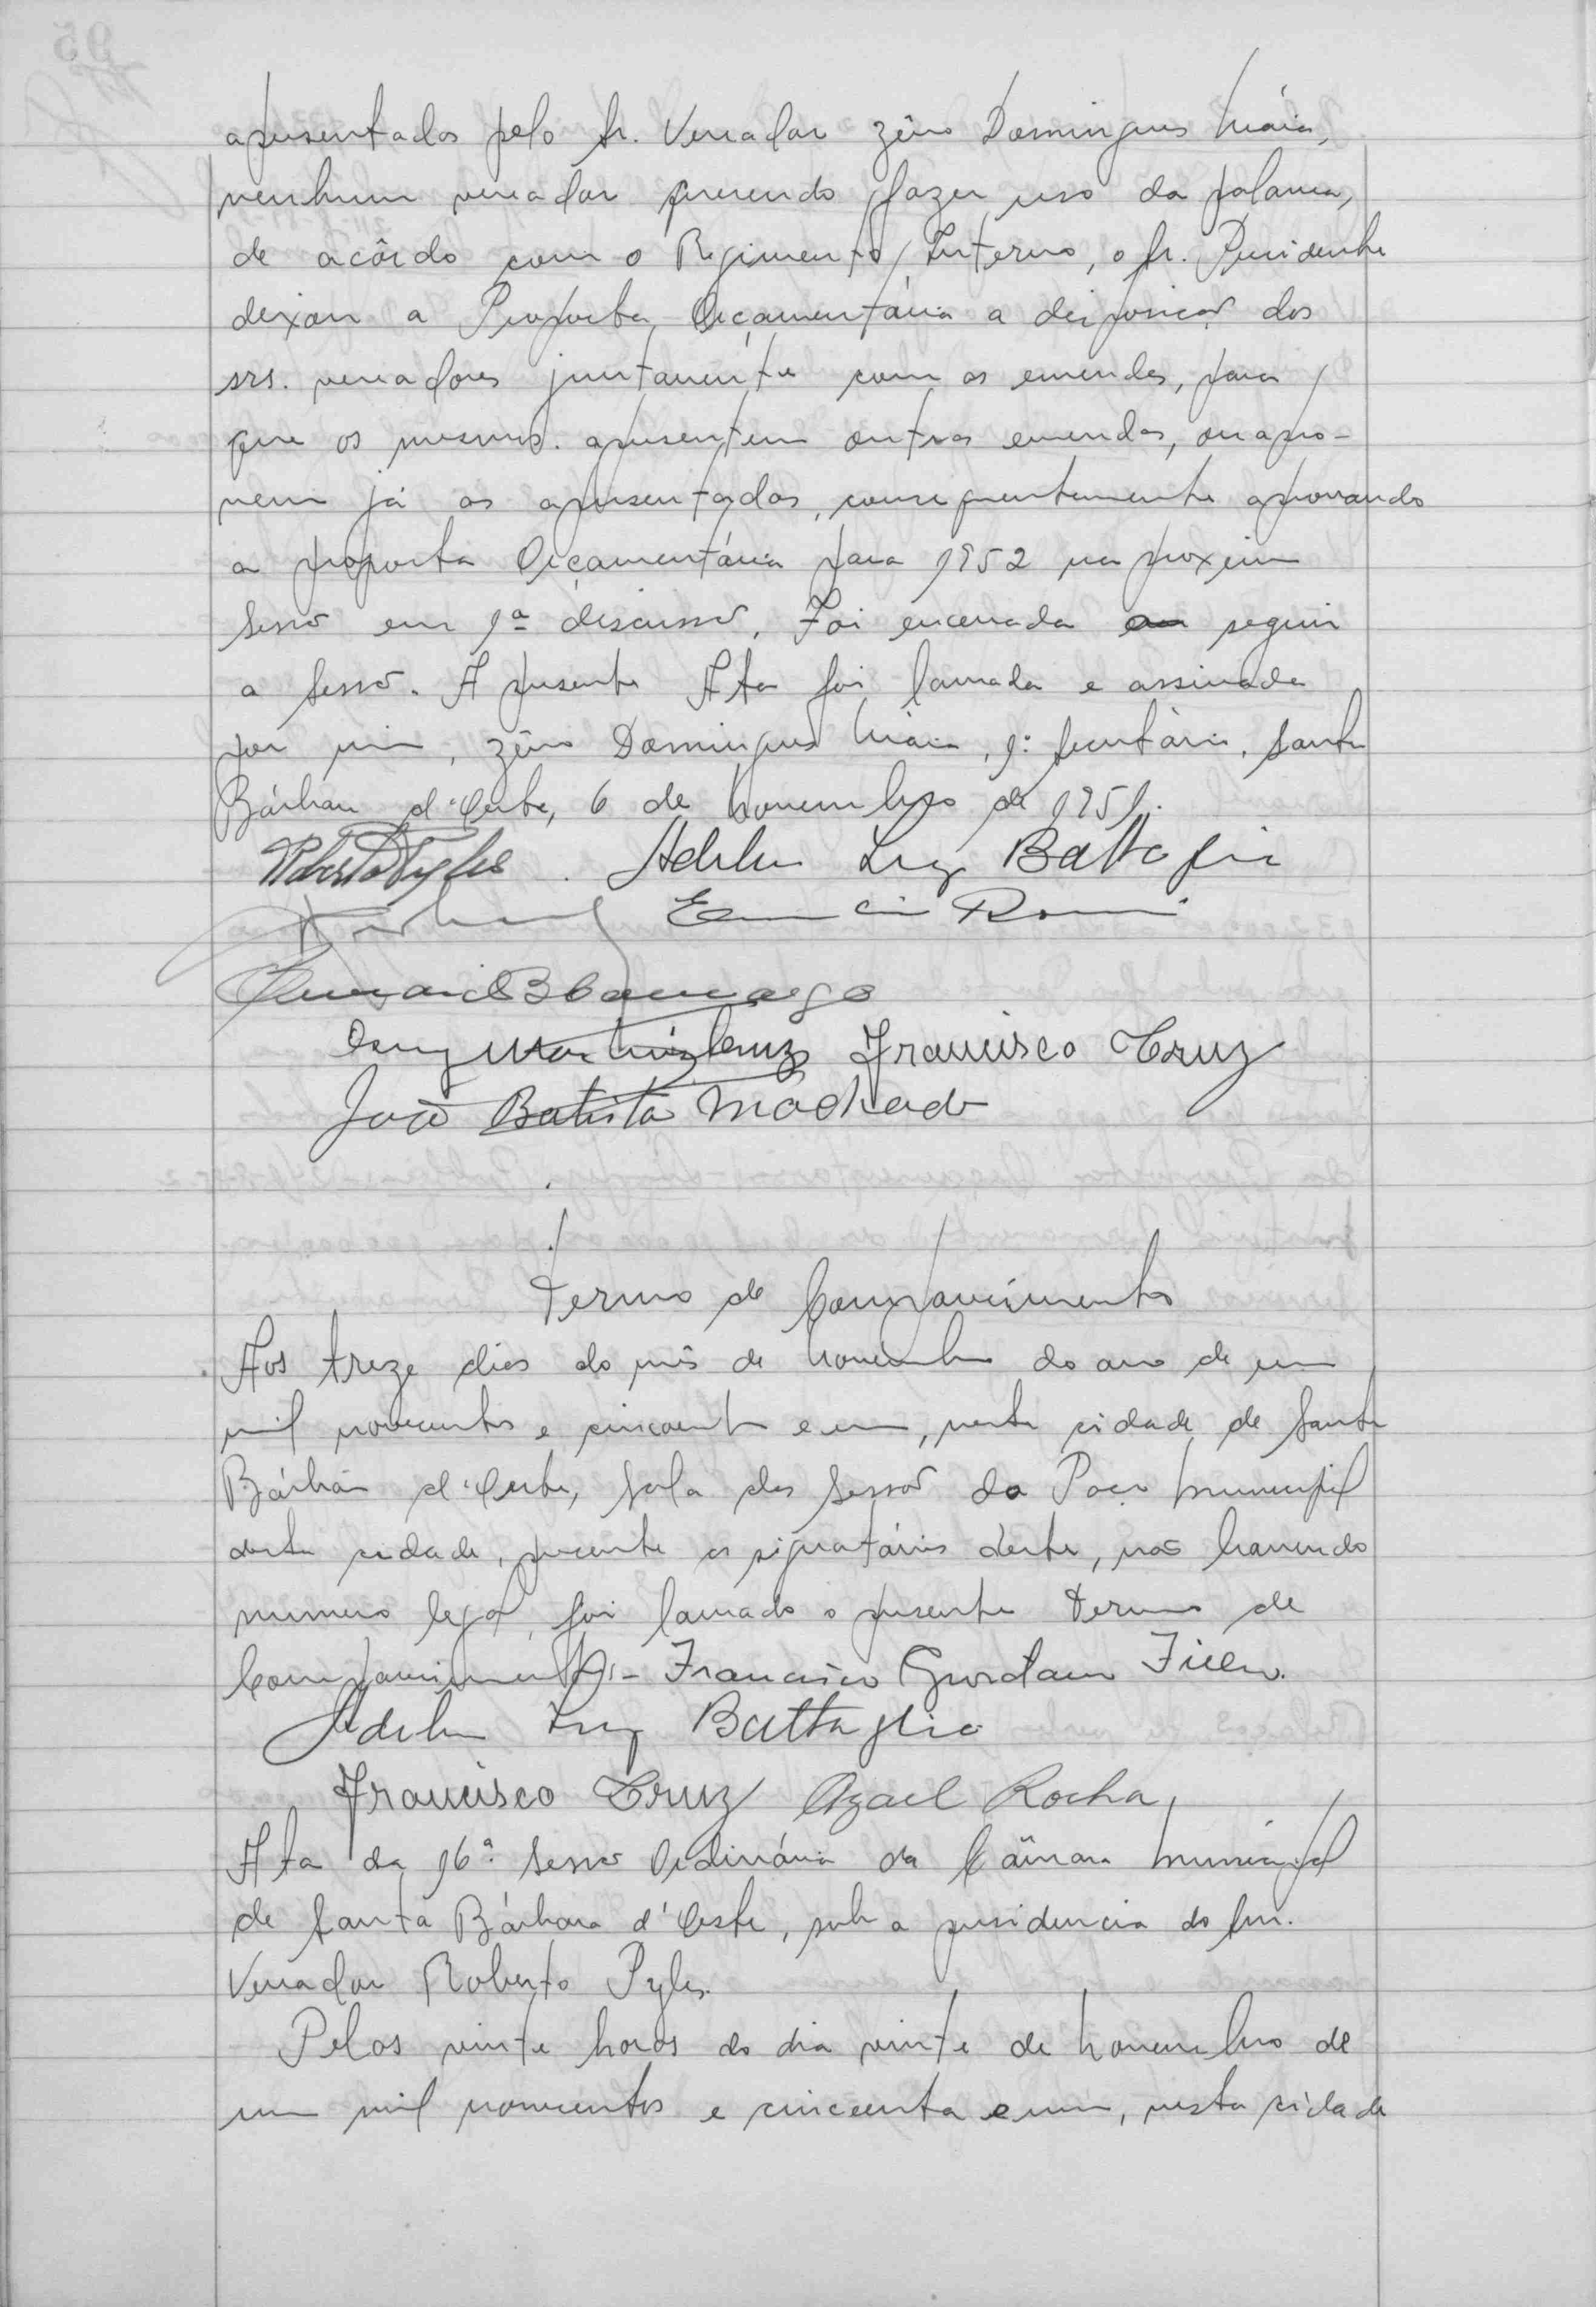 apresentadas pelo sr. Vereador Zêno Domingues Máia,
nenhum vereador querendo fazer uso da palavra,
de acôrdo com o Regimento Interno, o sr. Presidente
deixou a Proposta Orçamentária a disposição dos
srs. vereadores juntamente com as emendas, para
que os mesmos apresentem outras emendas, ou apro-
vem já as apresentadas, consequentemente aprovando
a proposta Orçamentária para 1952 na proxima
sessão em 1ª discussão. Foi encerrada a seguir
a sessão. A presente Ata foi lavrada e assinada
por mim, Zêno Domingues Máia, 1º Secretário. Santa
Bárbara d'Oeste, 6 de novembro de 1951.
Roberto Pyles. Adelmo Luiz Battaglia
Romi
B Camargo
Martins Cruz Francisco Cruz
João Batista Machado
Termo de Comparecimento
Aos treze dias do mês de novembro do ano de um
mil novecentos e cincoenta e um, nesta cidade de Santa
Bárbara d'Oeste, sala das Sessão do Paço Municipal
desta cidade, presente os signatários deste, não havendo
numero legal, foi lavrado o presente termo de
Comparecimento:- Francisco Giordano Filho.
Adelmo Luiz Battaglia
Francisco Cruz Azael Rocha
Ata da 16ª Sessão Ordinária da Câmara Municipal
de Santa Bárbara d'Oeste, sob a presidencia do snr.
Vereador Roberto Pyles.
Pelas vinte horas do dia vinte de novembro de
um mil novecentos e cincoenta e um, nesta cidade